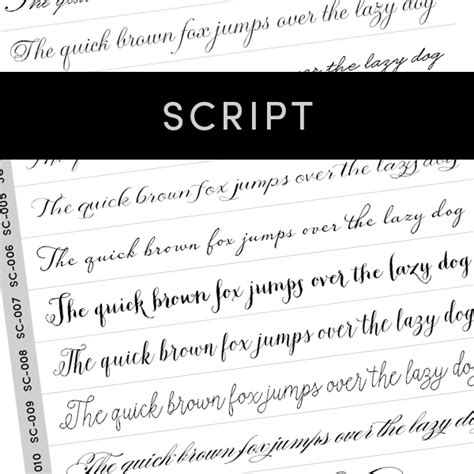 The quick brown fox jumps over the lazy dog
over the lazy dog
SCRIPT
SC-005 The quick brown fox jumps over the lazy dog
SC-006 The quick brown fox jumps over the lazy dog
SC-007 The quick brown fox jumps over the lazy dog
SC-008 The quick brown fox jumps over the lazy dog
SC-009 The quick brown fox jumps over the lazy dog
010 The quick brown fox jumps over the lazy dog